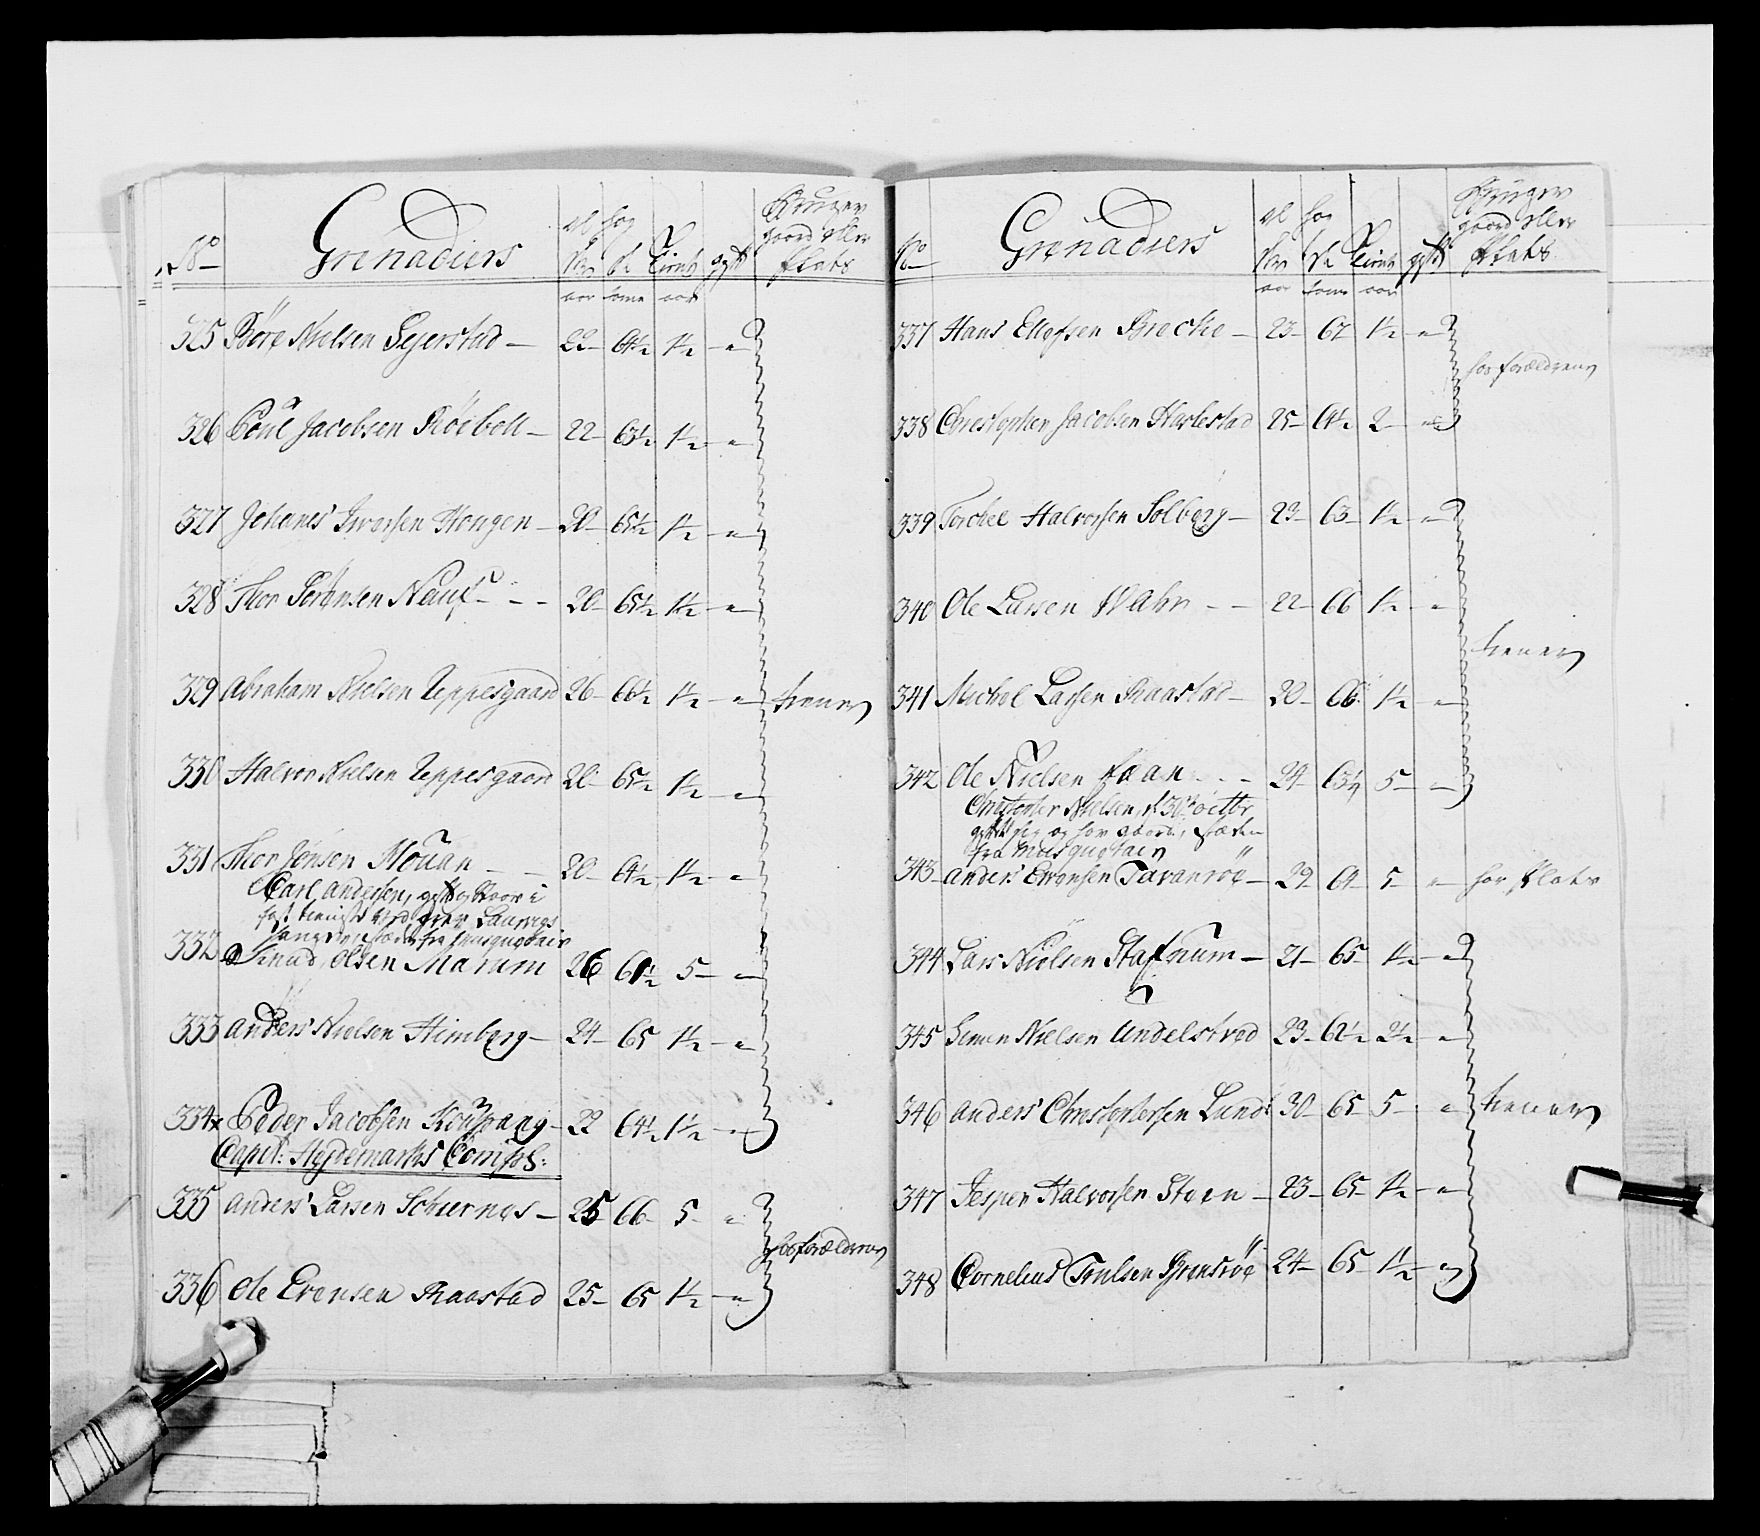 No Grenadiers al der hog de Tient gift Bruger gaard eller Plads
aar tome aar
325 Børe Nielsen Sejerstad — 22 — 64½ 1½ — "
326 Poul Jacobsen Röebell — 22 — 63½ 1½ — "
327 Johanes Iversen Hougen — 20 — 65½ 1½ — "
328 Thor Sörensen Nauf - - - 20 — 65½ 1½ — "
329 Abraham Nielsen Teppesgaard 26 — 66½ 1½ — " tienner
330 Halvor Nielsen Teppesgaard 20 — 65½ 1½ — "
331 Thor Jensen Mouan — — 20 — 64½ 1½ — "
Carl Andersen, gift og boor i
fast tienniste ved grev Laurvigs
steden fra Musquetair
332 Knud Olsen Marum 26 61½ 5 — "
333 Anders Nielsen Himberg — 24 — 65 1½ — "
334 x Peder Jacobsen Koupang — 22 64½ 1½ — "
Capit: Heydemarks Comp:
335 Anders Larsen Schiernes — 25 66 — 5 — "
hos forældrene
336 Ole Evensen Raastad 25 — 65 1½ — "
No Grenadiers al der hog de Tient gift Bruger gaard eller Plads
aar tome aar
337 Hans Ellefsen Brecke — 23 — 67 1½ — "
hos forældrene
338 Christopher Jacobsen Harlestad 25 — 64½ 2 — "
339 Torchel Halvorsen Solberg — 23 — 63 — 1½ — "
340 Ole Larsen Wahr — — 22 — 66 1½ — "
tienner
341 Michel Larsen Raastad — 20 — 66 1½ — "
342 Ole Nielsen Haan - - - 24 — 63½ 5 — "
Christopher Nielsen, d 30te octbr
gift sig og har steden
fra Musquetair
343 Anders Evensen Tavansöe — 29 — 64 — 5 — " har Plads
344 Lars Nielsen Stafnum — 21 — 65 — 1½ — "
345 Simen Nielsen Undelstvad 23 — 62½ 2½ — "
346 Anders Christophersen Lund 30 — 65 5 — " tienner
347 Jesper Halvorsen Steen — 23 — 65 — 1½ — "
348 Cornelius Trulsen Brensröe 24 — 65 1½ — "